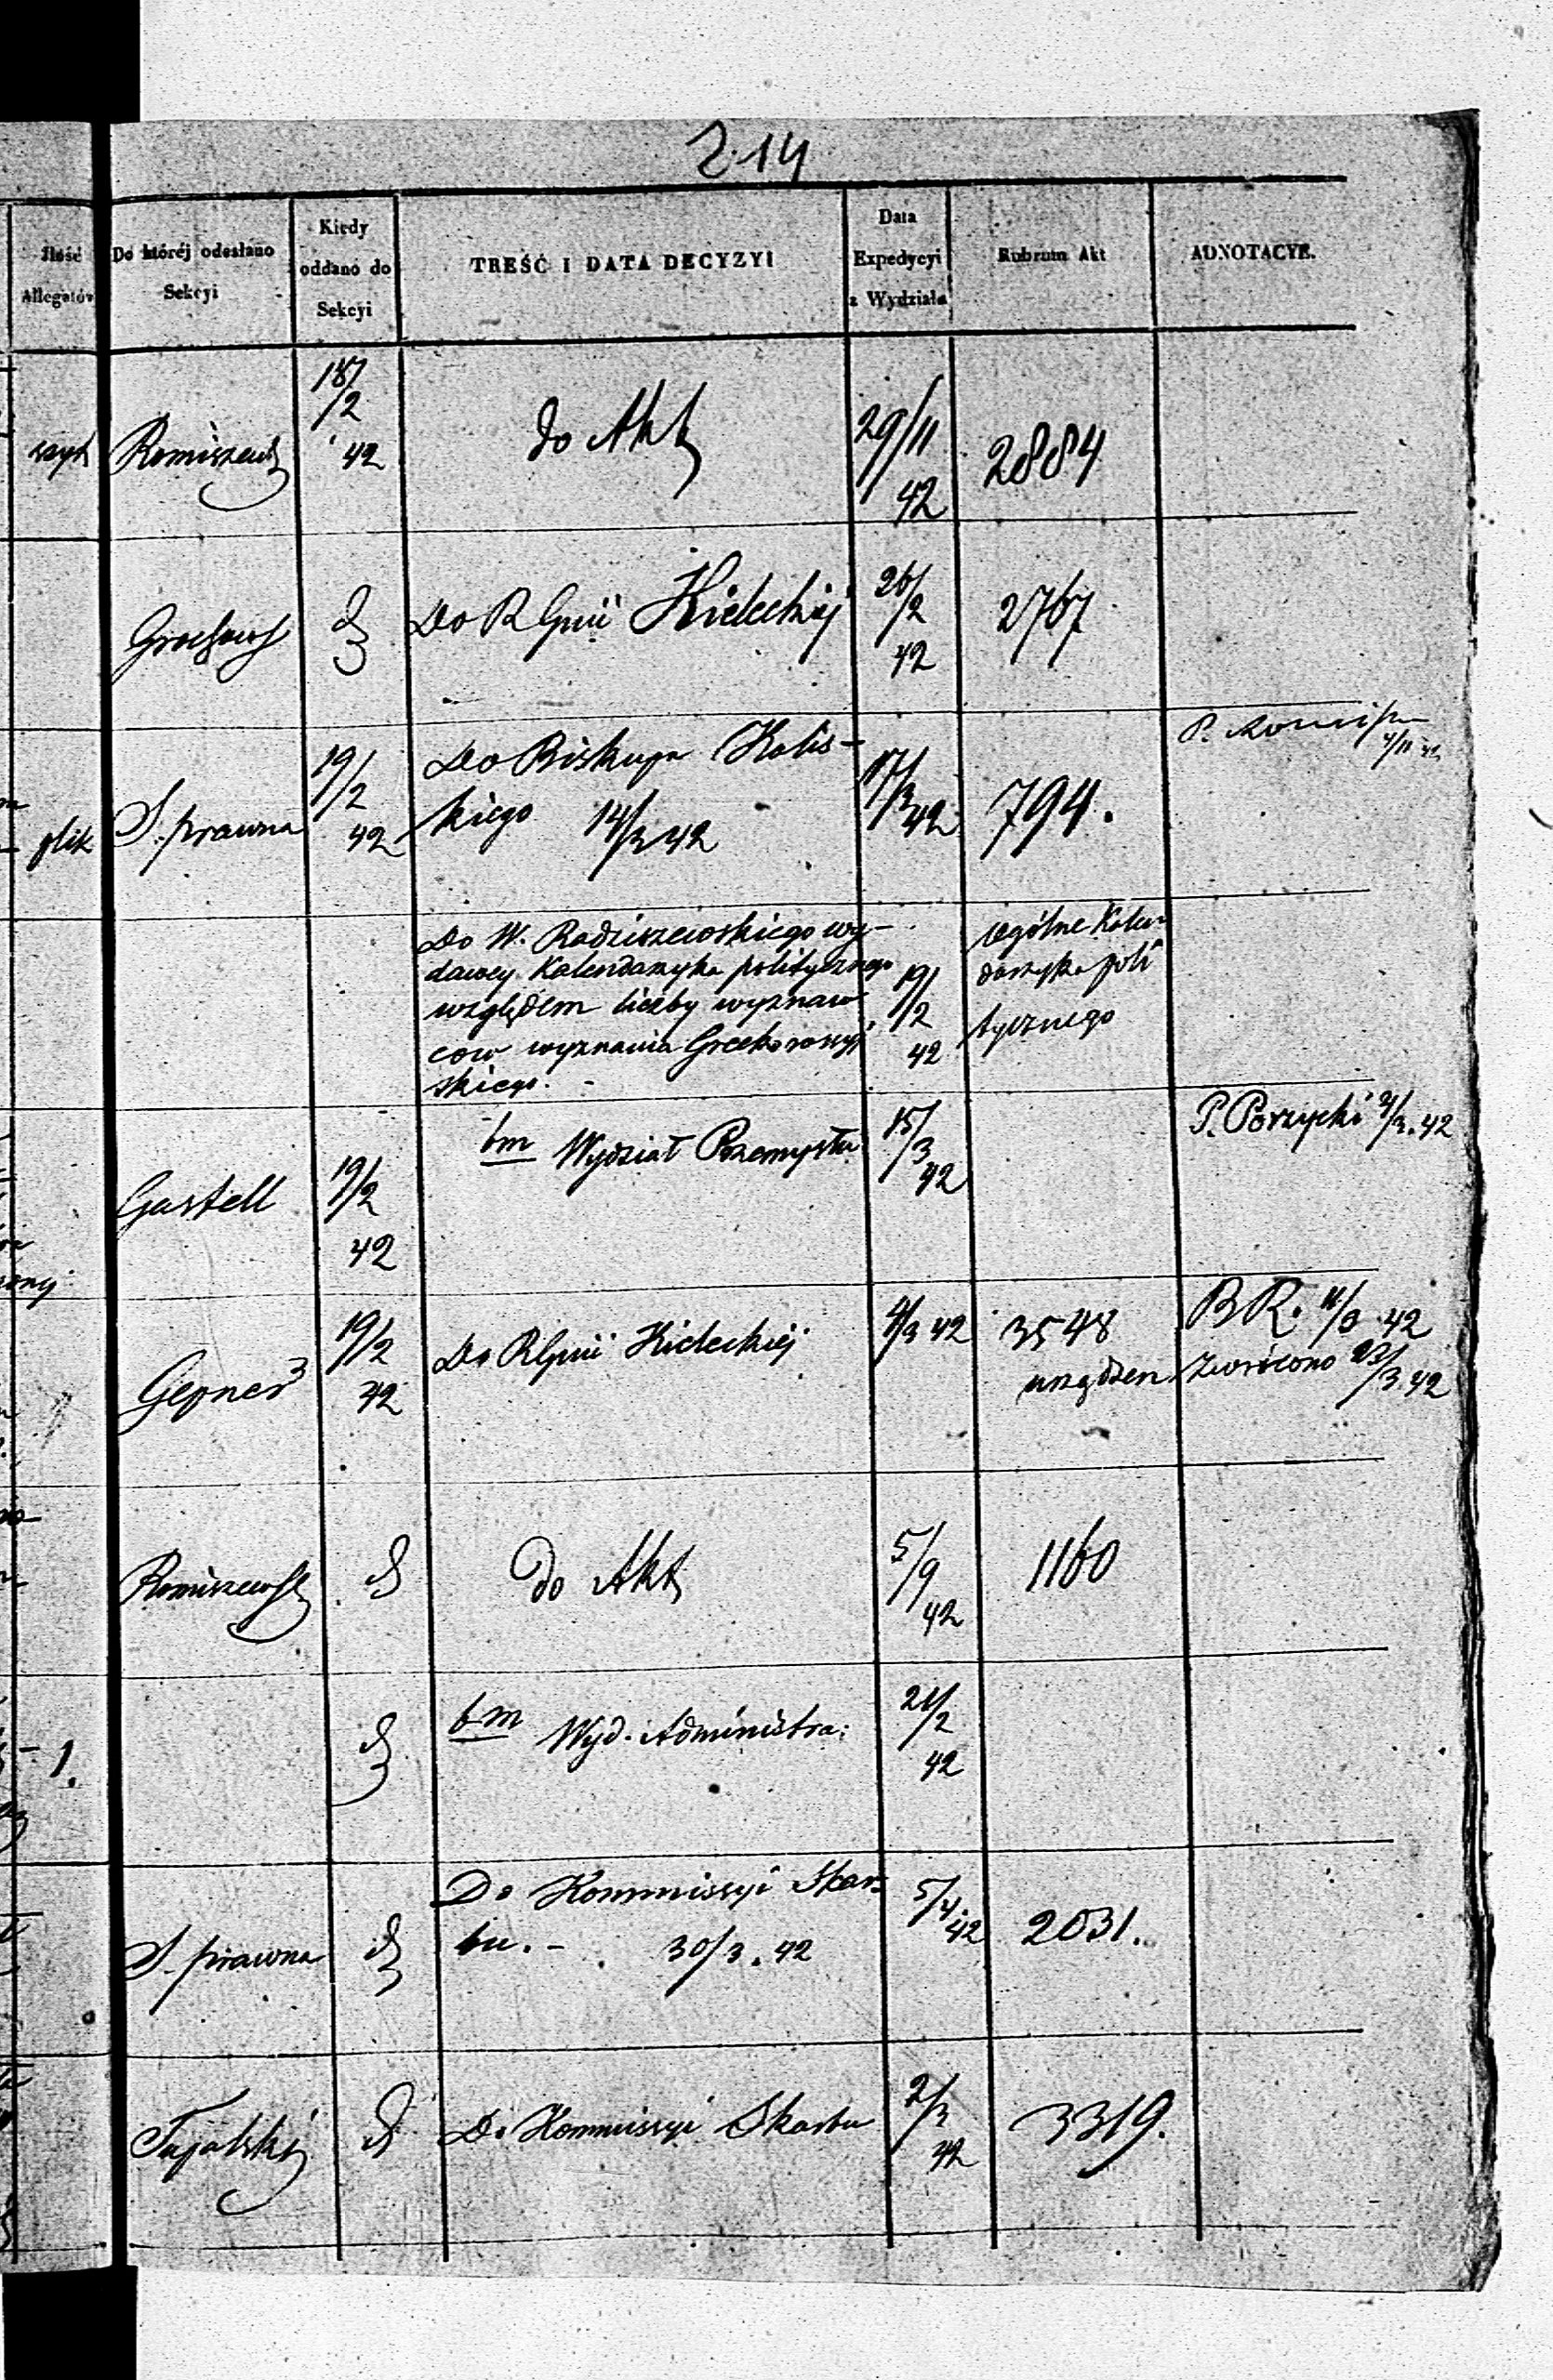 214
Jlość Allegatów
Do któréj odesłano Sekcyi
Kiedy oddano do Sekcyi
TREŚĆ I DATA DECYZYI
Data Expedycyi z Wydziału
Rubrum Akt
ADNOTACYE.
18/2 42
do Akt
29/11 42
2884
Do R Gnii Kieleckiej
26/2 42
2767
plik
S. prawna
19/2 42
Do Biskupa Kalis-
kiego 14/3 42
17/3 42
794.
Do W. Radziszewskiego wy-
dawcy Kalendarzyka politycznego
względem liczby wyznaw
ców wyznania Greko rossyj
skiego.
19/2 42
ogólne Kalen
darzyka poli
tycznego
Gastell
19/2 42
bm Wydział Przemysłu
15/3 42
P. Porzycki 2/3. 42
Gepner
19/2 42
Do R Gnii Kieleckiej
4/3 42
3548
BR. 11/3 42
zwrócono 23/3 42
Romiszewski
do Akt
5/9 42
1160
1.
bm Wyd. Administra:
21/2 42
S. prawna
Do Kommissyi Skar-
bu. - 30/3. 42
5/4 42
2031.
Do Kommissyi Skarbu
2/3 42
3319.